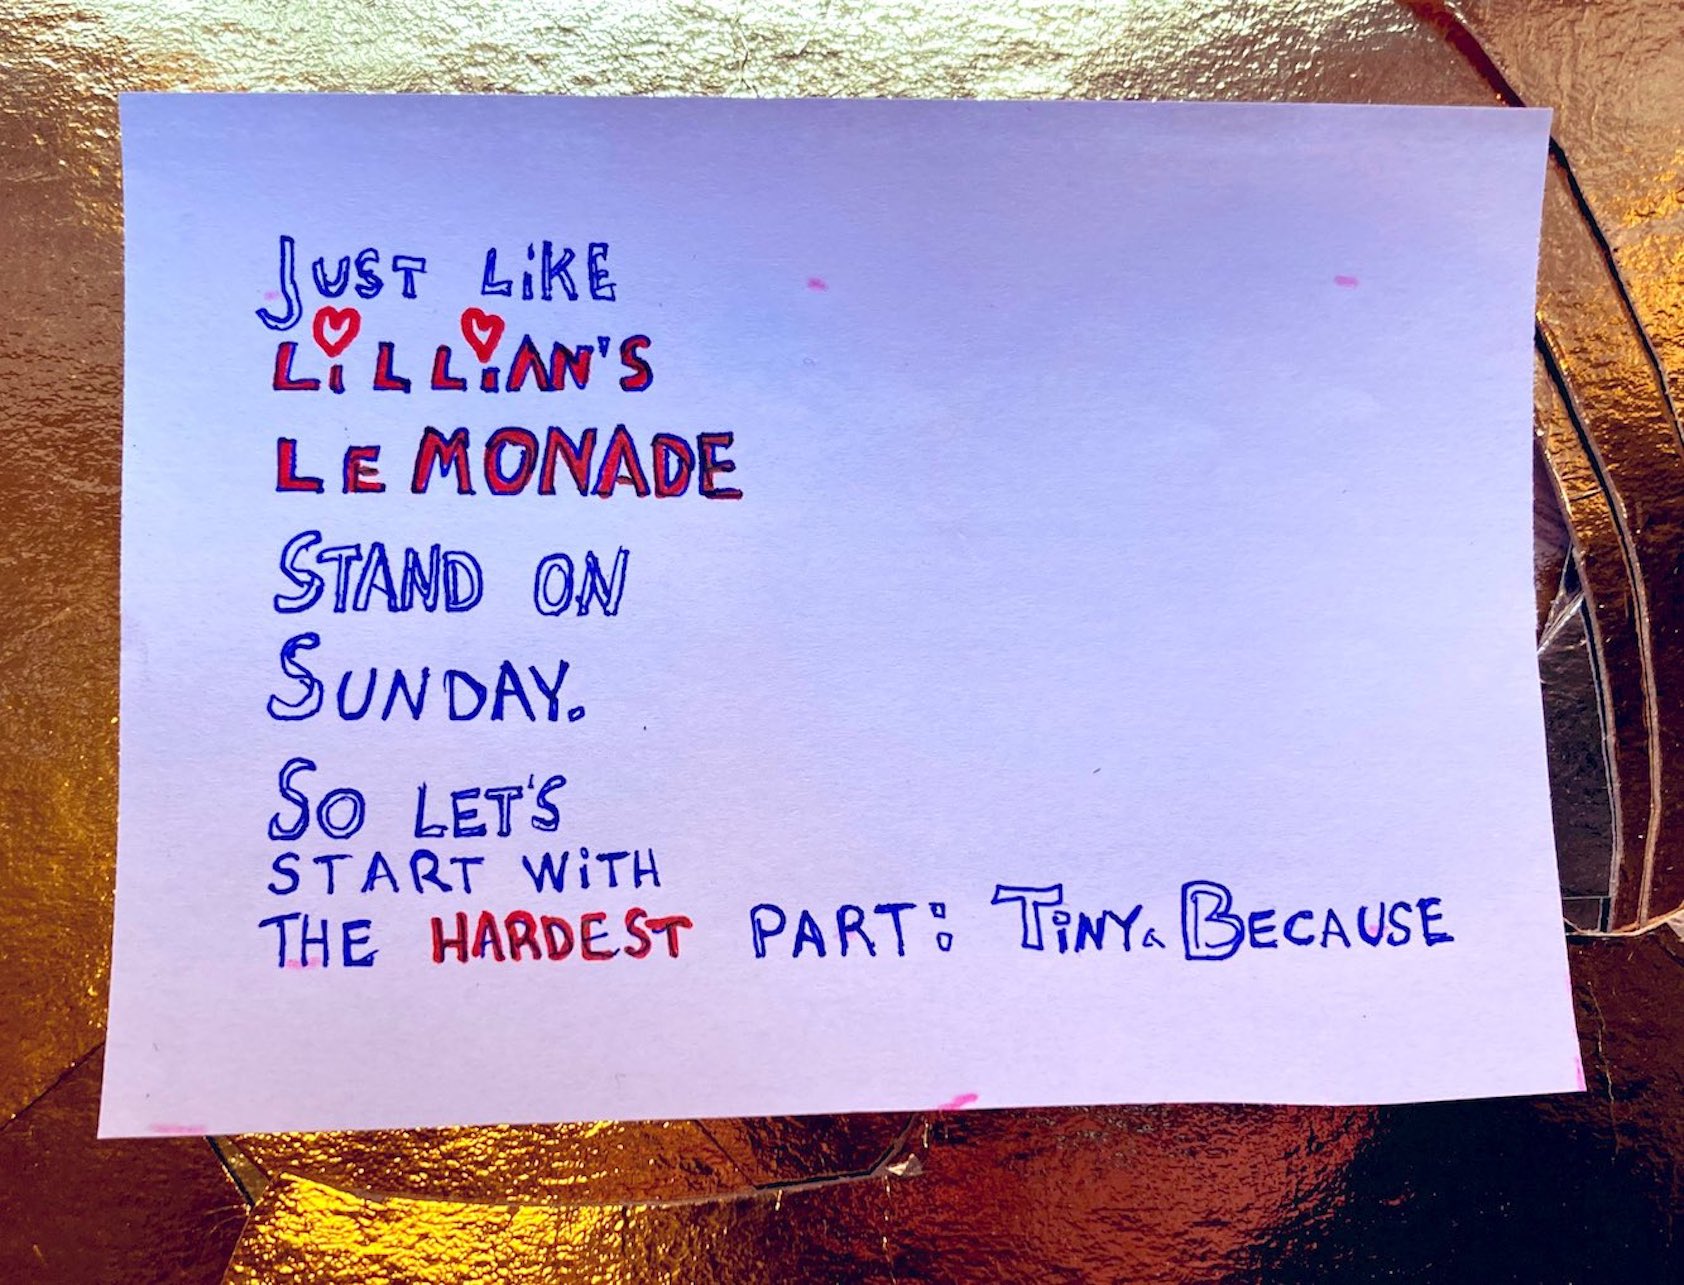 JUST LiKE
LiLLiAN'S
LEMONADE
STAND ON
SUNDAY.
SO LET'S
START WiTH
THE HARDEST PART: TiNY. BECAUSE